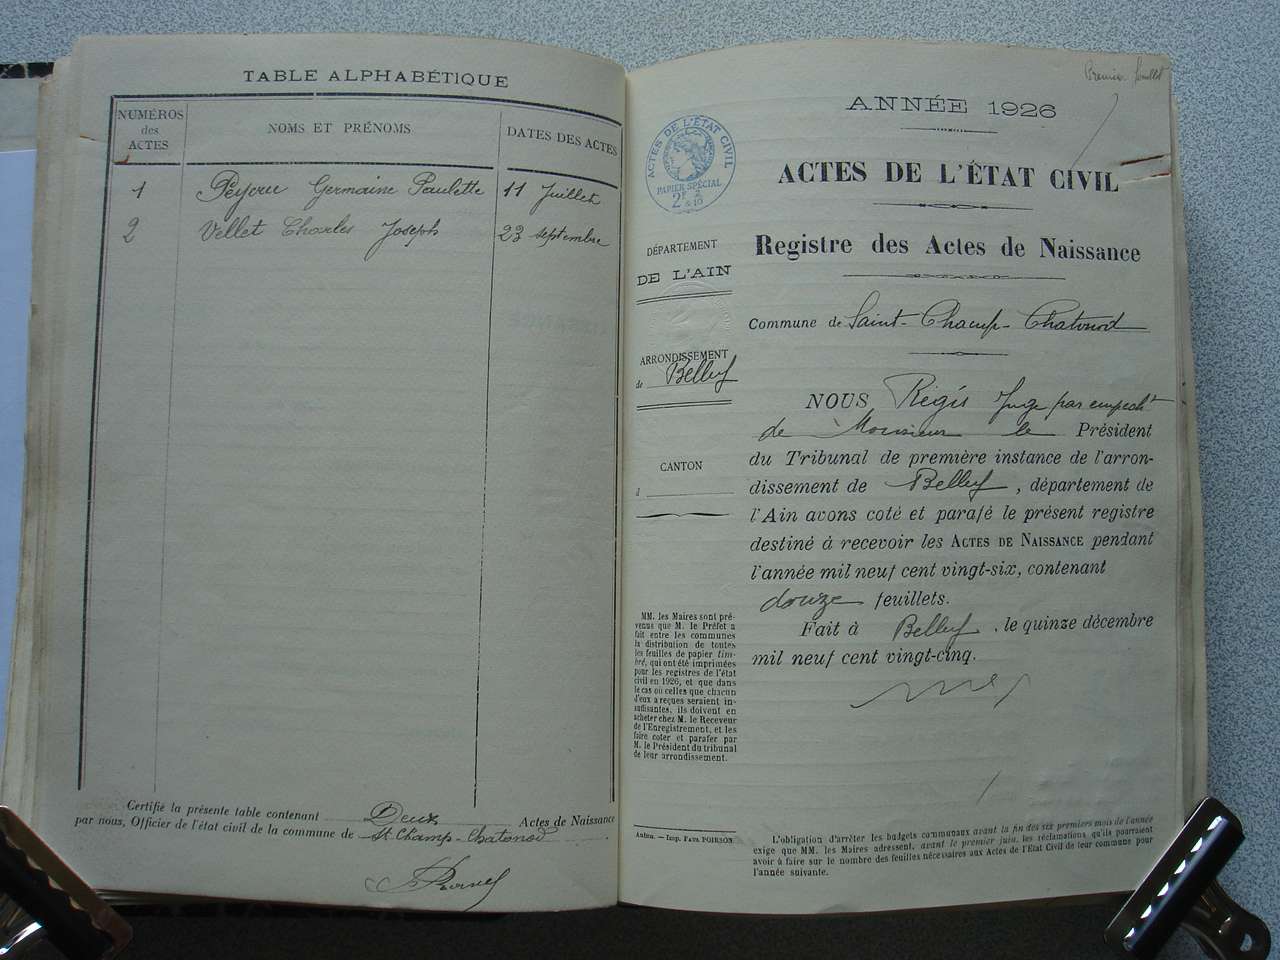 TABLE ALPHABÉTIQUE
NUMÉROS des ACTES
NOMS ET PRÉNOMS
DATES DES ACTES
1 Germaine Paulette 11 Juillet
2 Vellet Charles Joseph 23 septembre
Certifié la présente table contenant Deux Actes de Naissance
par nous, Officier de l'état civil de la commune de St Champ-Chatonod
Premier feuillet
ANNÉE 1926
ACTES DE L'ÉTAT CIVIL
PAPIER SPÉCIAL
ACTES DE L'ÉTAT CIVIL
Registre des Actes de Naissance
DÉPARTEMENT
DE L'AIN
Commune de Saint-Champ-Chatonod
ARRONDISSEMENT
de Belley
CANTON
d
NOUS Régis Juge par empecht
de Monsieur le Président
du Tribunal de première instance de l'arron-
dissement de Belley, département de
l'Ain avons coté et parafé le présent registre
destiné à recevoir les ACTES DE NAISSANCE pendant
l'année mil neuf cent vingt-six, contenant
douze feuillets.
Fait à Belley, le quinze décembre
mil neuf cent vingt-cinq.
MM. les Maires sont pré-
venus que M. le Préfet a
fait entre les communes
la distribution de toutes
les feuilles de papier tim-
bré, qui ont été imprimées
pour les registres de l'état
civil en 1926, et que dans
le cas où celles que chacun
d'eux a reçues seraient in-
suffisantes, ils doivent en
acheter chez M. le Receveur
de l'Enregistrement, et les
faire coter et parafer par
M. le Président du tribunal
de leur arrondissement.
Imp. PAUL POIRSON.
L'obligation d'arrêter les budgets communaux avant la fin des six premiers mois de l'année
exige que MM. les Maires adressent, avant le premier juin, les réclamations qu'ils pourraient
avoir à faire sur le nombre des feuilles nécessaires aux Actes de l'État Civil de leur commune pour
l'année suivante.